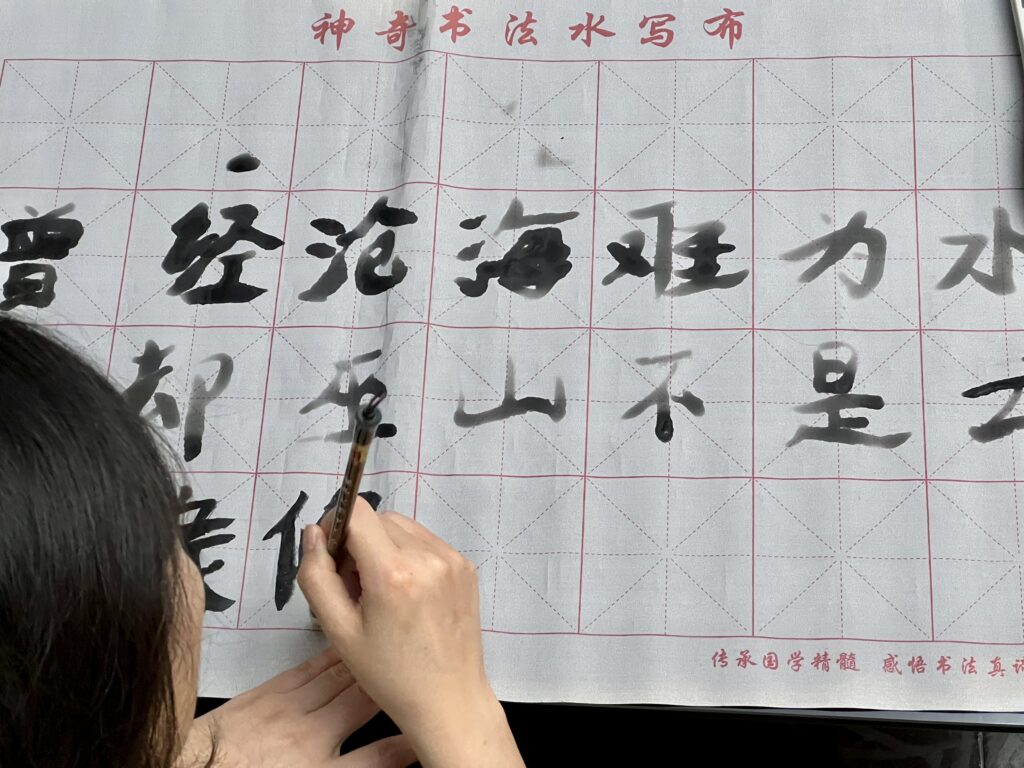 神奇书法水写布
曾经沧海难为水
却巫山不是云
传承国学精髓 感悟书法真